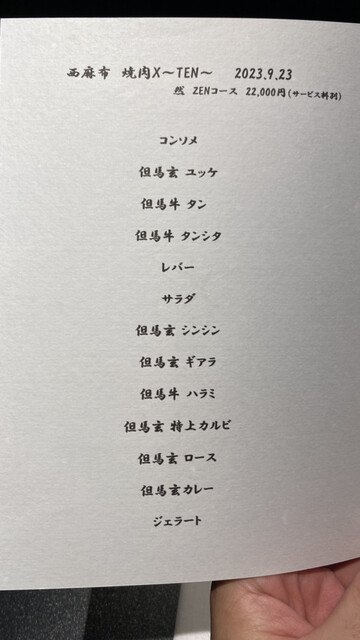 西麻布 焼肉X～TEN～ 2023.9.23
然 ZENコース 22,000円(サービス料別)
コンソメ
但馬玄 ユッケ
但馬牛 タン
但馬牛 タンシタ
レバー
サラダ
但馬玄 シンシン
但馬玄 ギアラ
但馬牛 ハラミ
但馬玄 特上カルビ
但馬玄 ロース
但馬玄カレー
ジェラート